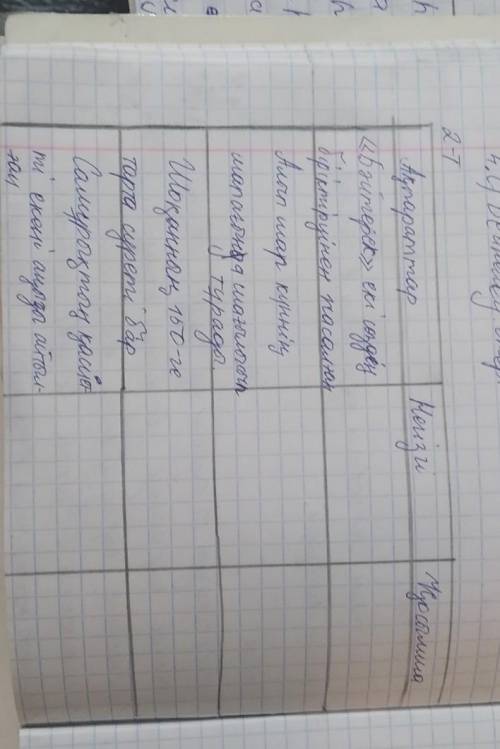 2-т
Ақпараттар Негізгі Қосымша
«Бәйтерек» екі сөздің
бірігуінен жасалған
Алып шар күннің
шапағында шағылысып
тұрады
Шоқанның 150-ге
тарта суреті бар
Самұрықтың қасие
ті екені аңызда айтыл-
ған